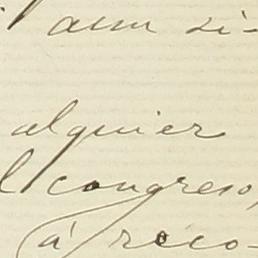 aun si-
alquier
l congreso,
á reco-